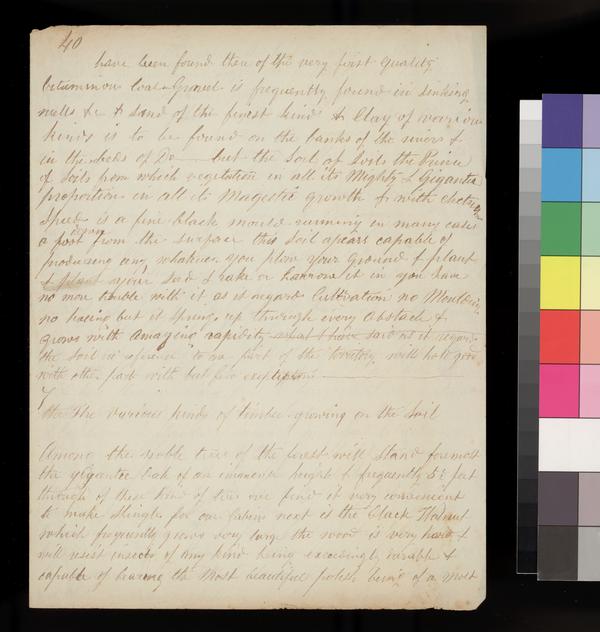 40
have been found then of the very first quality
bituminous Coal & Gravel is frequently found in sinking
wells &c & sand of the finest kind & Clay of various
kinds is to be found on the banks of the rivers &
in the beds of Do but the Soil of Soils the Prince
of Soils from which vegetation in all its Mighty & Gigantic
proportion in all its Magestic growth & with electric
Speed is a fine black mould running in many cases
down
a foot from the surface this Soil apears capable of
produceing any whatever you plow your Ground & plant
& plant your Seed & rake or harrow it in you have
no more trouble with it, as it regard Cultivation no
no hoeing but it Springs up through every Obstacle &
grows with amazing rapidity what I have said as it regard
the Soil in reference to one part of the territory will hold good
with other part with but few exeptions
7
the The various kinds of timber growing on the Soil
Among the noble trees of the forest will Stand foremost
the gigantic Oak of an immense height & frequently 5½ feet
through of these kind of trees we find it very convenient
to make Shingles for our Cabins next is the black Walnut
which frequently grows very large the wood is very hard &
will resist insects of any kind being exceedingly durable &
capable of bearing the Most beautiful polish being of a most